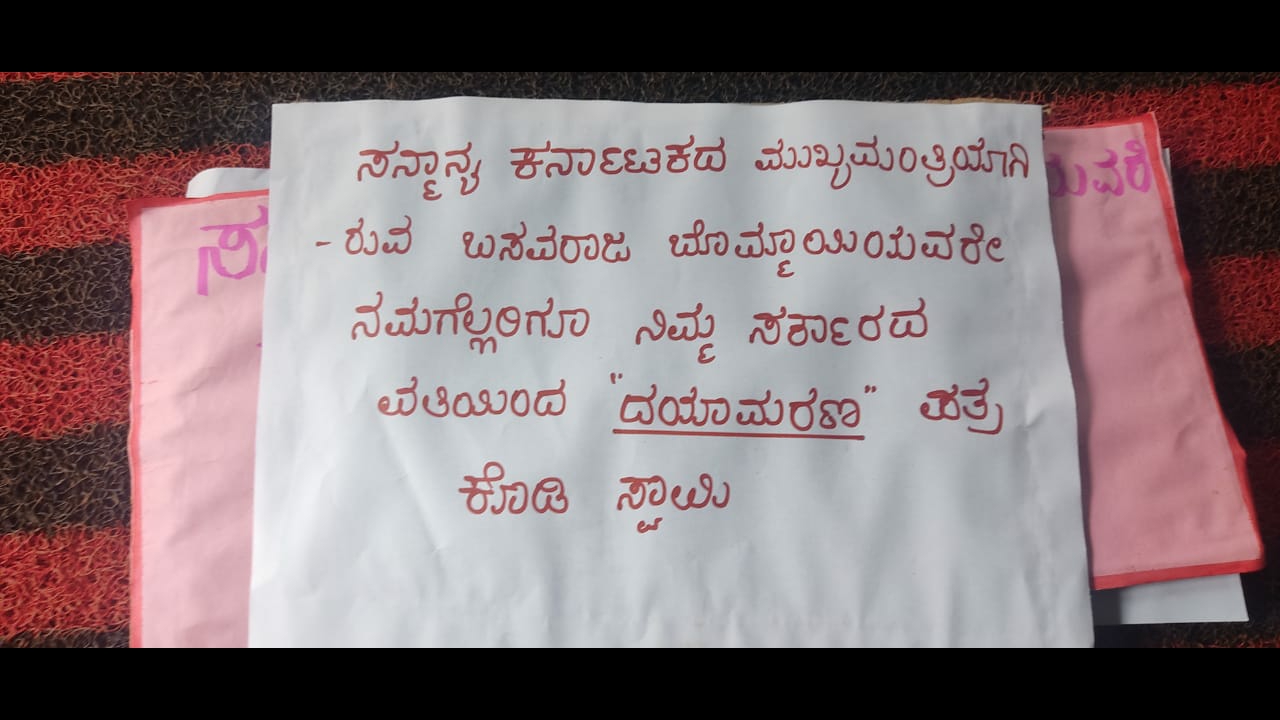 ಸನ್ಮಾನ್ಯ ಕರ್ನಾಟಕದ ಮುಖ್ಯಮಂತ್ರಿಯಾಗಿ
- ರುವ ಬಸವರಾಜ ಬೊಮ್ಮಾಯಿಯವರೇ
ನಮಗೆಲ್ಲರಿಗೂ ನಿಮ್ಮ ಸರ್ಕಾರದ
ವತಿಯಿಂದ "ದಯಾಮರಣ" ಪತ್ರ
ಕೊಡಿ ಸ್ವಾಮಿ